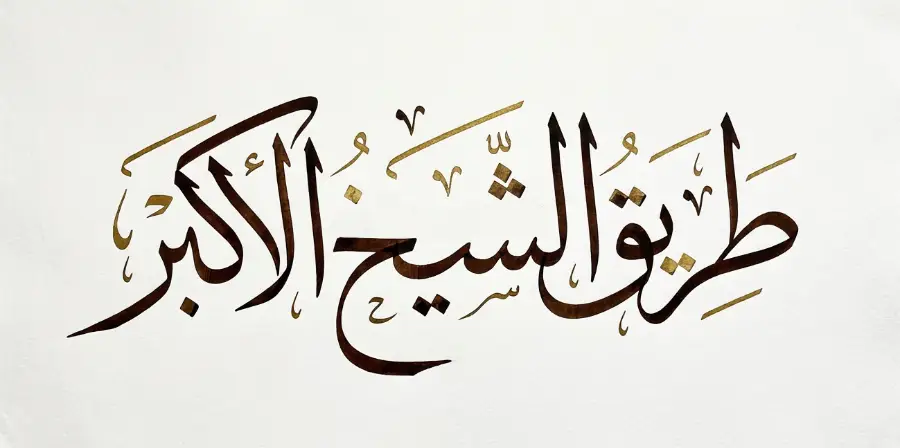 طَرِيقُ الشَّيْخُ الأَكْبَرْ